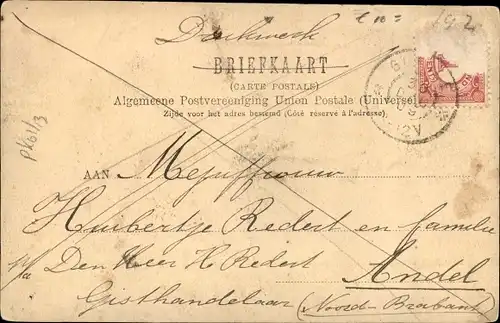 Drukwerk
192
BRIEFKAART
(CARTE POSTALE)
Algemeene Postvereeniging Union Postale (Universel
Zijde voor het adres bestemd (Côté réservé à l'adresse).
PK61/3
12V
AAN Mejuffrouw
Huibertje Redert en familie
p/a Den Heer H Redert Andel
Gisthandelaar (Noord-Brabant)